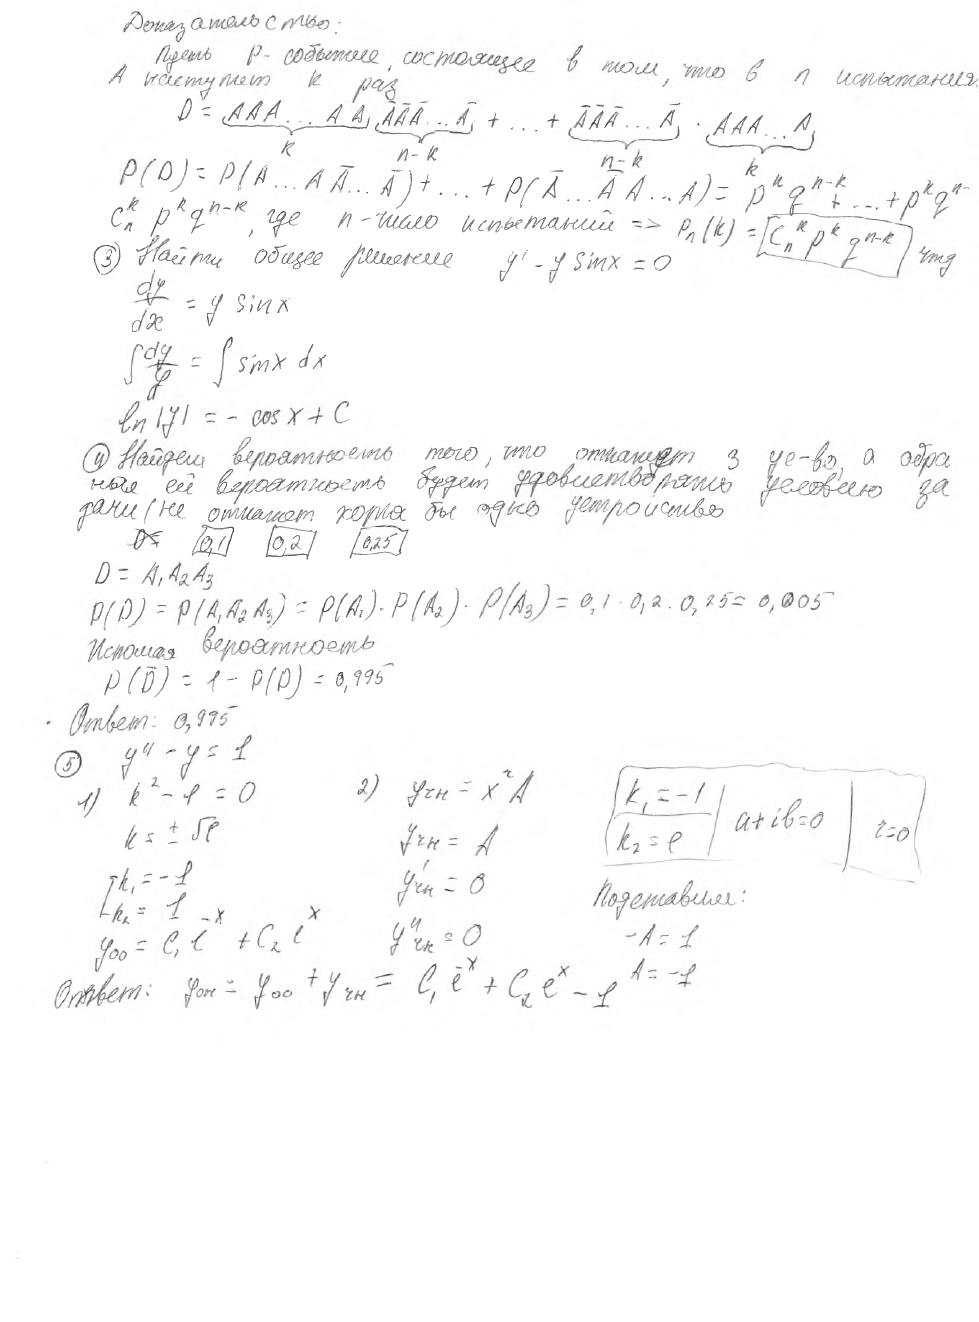 Доказательство:
Пусть P - событие, состоящее в том, что в n испытания
A наступит k раз
D = AAA...AA ĀĀĀ...Ā + ... + ĀĀĀ...Ā · AAA...A
k n-k n-k k
P(D) = P(A...A Ā...Ā) + ... + P(Ā...Ā A...A) = p^k q^{n-k} + ... + p^k q^{n-
C_n^k p^k q^{n-k}, где n - число испытаний => P_n(k) = C_n^k p^k q^{n-k} чтд
③ Найти общее решение y' - y sinx = 0
dy/dx = y sinx
∫ dy/y = ∫ sinx dx
ln|y| = - cos x + C
④ Найдем вероятность того, что откажет 3 ус-во, а обра
ная ей вероятность будет удовлетворять условию за
дачи (не откажет хотя бы одно устройство
0,1 0,2 0,25
D = A₁A₂A₃
P(D) = P(A₁A₂A₃) = P(A₁)·P(A₂)·P(A₃) = 0,1·0,2·0,25 = 0,005
Искомая вероятность
P(D̄) = 1 - P(D) = 0,995
Ответ: 0,995
⑤ y'' - y = 1
1) k² - 1 = 0 2) yчн = x^r A k₁ = -1 k₂ = 1 a+ib=0 r=0
k = ± √1 yчн = A
k₁ = -1 y'чн = 0 Подставим:
k₂ = 1 y''чн = 0 -A = 1
yоо = C₁e^{-x} + C₂e^x A = -1
Ответ: yон = yоо + yчн = C₁e^{-x} + C₂e^x - 1